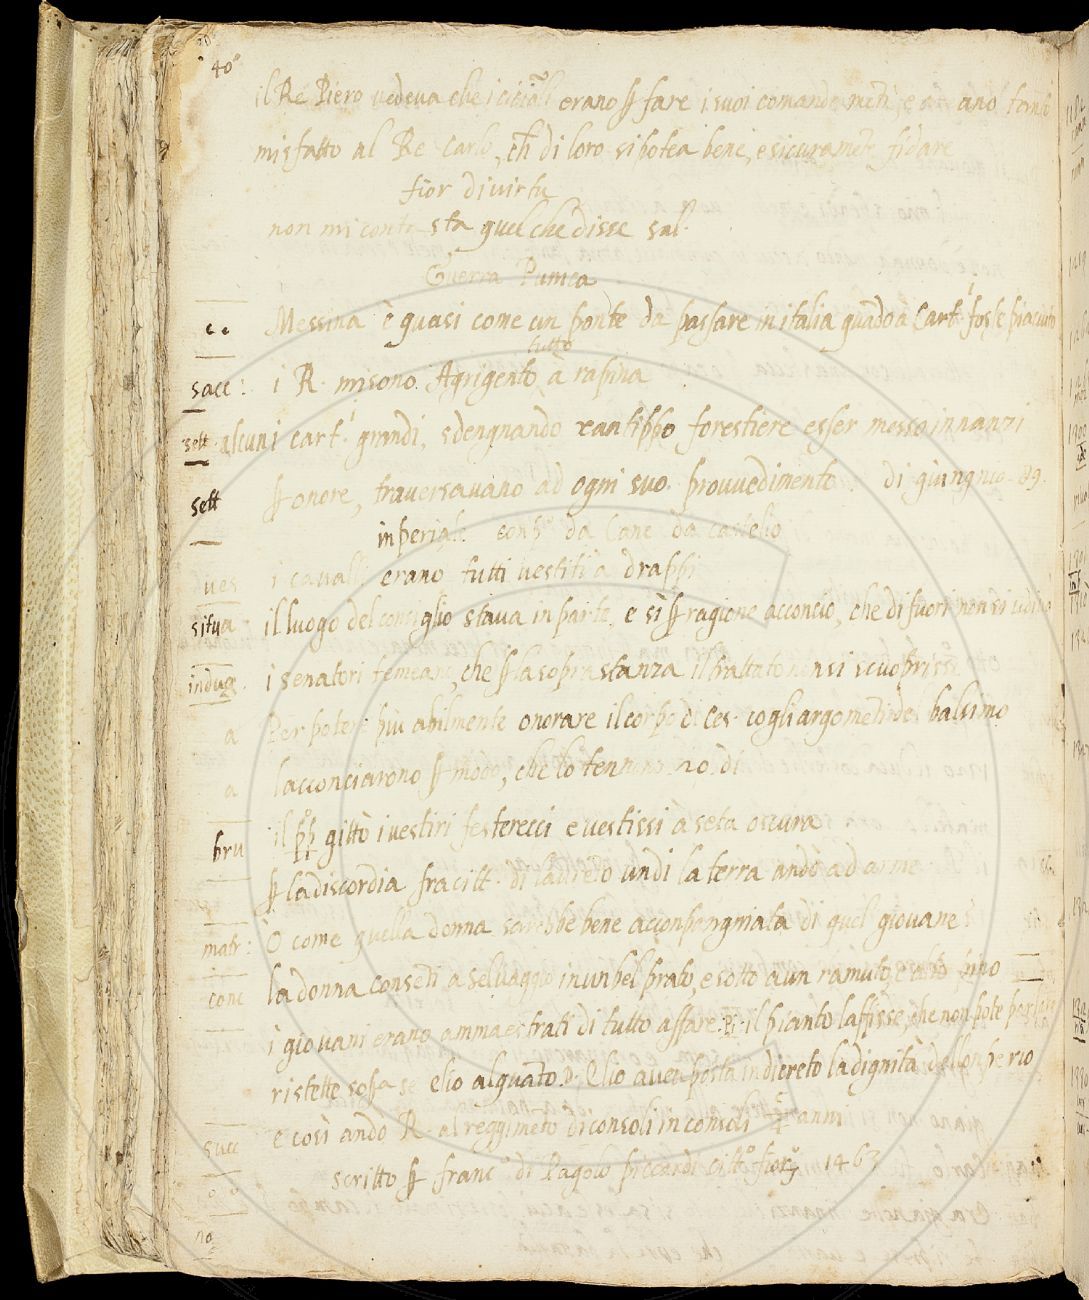 40
il Re Piero vedeva che i cicil. erano ꝑ fare i suoi comandamenti, e
misfatto al Re Carlo, ch̃ di loro si potea bene, e sicuramẽte fidare
fior di virtu
non mi contasta quel che disse sal.
Guerra Punica
c.
Messina è quasi come un ponte da passare in italia quãdo à Cart.i fosse piaciuto
tutto
sacc: i R. misono Agrigento à rapina
sett alcuni cart.i grandi, sdengnando xantippo forestiere esser messo innanzi
sett ꝑ onore, traversavano ad ogni suo provvedimento. di giungnio. 89.
inperiale conp.o da Cane da castello
ves i cavalli erano tutti vestiti à drappi
situa il luogo del consiglio stava in parte, e sì ꝑ ragione acconcio, che di fuori non si udi
indug. i senatori temeano, che ꝑ la soprastanza il trattato non si scuoprisse
a Per poter più abilmente onorare il corpo di Ces. cogli argomẽti del balsimo
a l'acconciarono ꝑ modo, che lo tennono .20. dì
bru il pp gittò i vestiri festerecci e vestissi à seta oscura
ꝑ la discordia fra citt. di laureto undi la terra andò ad arme
matr: O come quella donna sarebbe bene acconpangniata di quel giovane
conc la donna consẽti a selvaggio in un bel prato, e sotto a un ramuto, e alto pino
i giovani erano ammaestrati di tutto affare. il pianto l'affisse, che non pote parlare
ristette sopra se elio alquãto. D. Elio avea posta indireto la dignità dello nperio
succ e così andò R. al reggimẽto di consoli in consoli anni
scritto ꝑ franc.o di Pagolo piccardi citt.o fior.o 1463